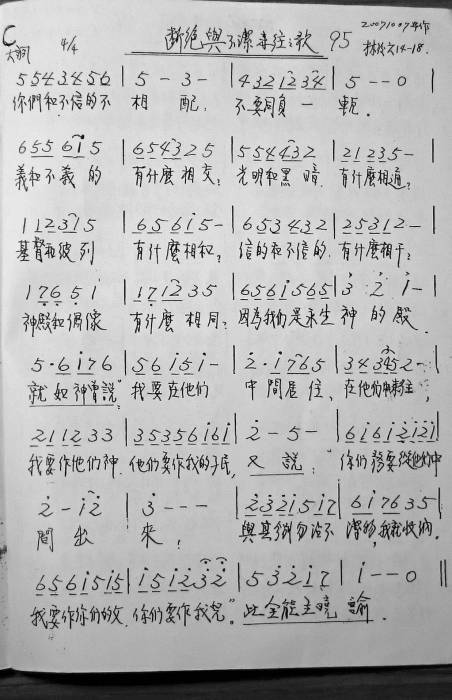 C 大調 4/4 斷絕與不潔毒往之歌 95 20071007年作 林後六14-18.
5 5 4 3 4 5 6 | 5 - 3 - | 4 3 2 1 2 3 4 | 5 - - 0 |
你們和不信的不 相 配, 不要同負 一 軛.
6 5 5 6 i 5 | 6 5 4 3 2 5 | 5 5 4 4 3 2 | 2 1 2 3 5 - |
義和不義 的 有什麼相交? 光明和黑 暗 有什麼相通?
1 1 2 3 1 5 | 6 5 6 i 5 - | 6 5 3 4 3 2 | 2 5 3 1 2 - |
基督和彼 列 有什麼相和? 信的和不信的 有什麼相干?
1 7 6 5 1 | 1 7 1 2 3 5 | 6 5 6 i 5 6 5 | 3 2 i - |
神殿和偶像 有什麼 相 同? 因為我們是永生 神 的 殿.
5 · 6 i 7 6 | 5 6 i 5 i - | 2 · i 7 6 5 | 3 4 3 4 5 2 - |
就 如 神曾說:"我要在他們 中 間居 住, 在他們中來往,
2 1 1 2 3 3 | 3 5 3 5 6 i 6 i | 2 - 5 - | 6 i 6 i 2 i 2 i |
我要作他們神. 他們要作我的子民, 又 說:"你們務要從他們中
2 - i 2 | 3 - - - | 2 3 2 i 5 i 7 | 6 i 7 6 3 5 |
間 出 來, 與其剝勿沾不 潔的物,我就收納.
6 5 6 i 5 i 5 | i 5 i 2 3 2 | 5 3 2 i 7 | i - - 0 ||
我要作你們的父. 你們要作我兒." 此全能主曉 諭.